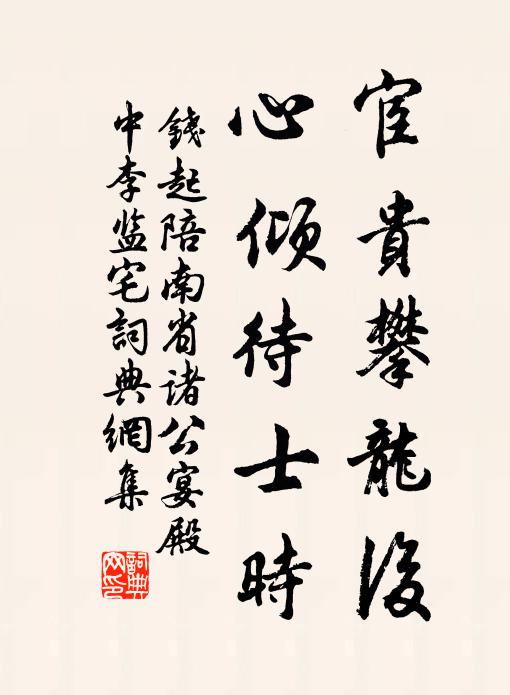 宦貴攀龍後
心傾待士時
錢起陪南省诸公宴殿
中李监宅詞典網集
詞典網印